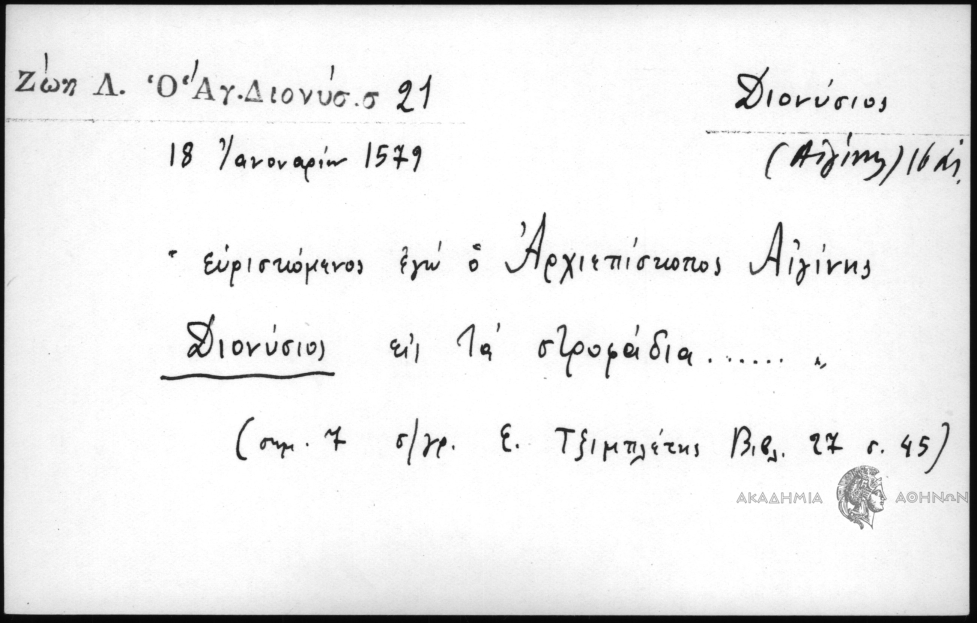 Ζώη Λ. Ὁ Ἅγ. Διονύσ. σ 21
Διονύσιος
18 Ἰανουαρίου 1579
(Αἰγίνης) 16 αἰ.
" εὑρισκόμενος ἐγώ ὁ Ἀρχιεπίσκοπος Αἰγίνης
Διονύσιος εἰς τά στροφάδια ....... "
(σημ. 7 σ/γρ. Ε. Τζιμπλέτης Βιβλ. 27 σ. 45)
ΑΚΑΔΗΜΙΑ ΑΘΗΝΩΝ